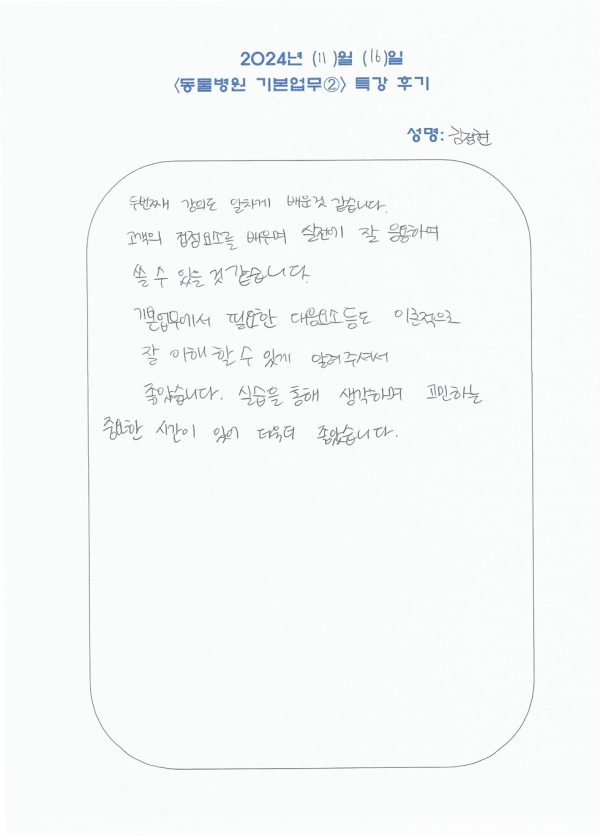 2024년 (11)월 (16)일
<동물병원 기본업무②> 특강 후기
성명: 김정현
두번째 강의도 알차게 배운것 같습니다.
고객의 접점요소를 배우며 실전에 잘 응용하며
쓸 수 있을 것 같습니다.
기본업무에서 필요한 대응요소등도 이론적으로
잘 이해 할 수 있게 알려주셔서
좋았습니다. 실습을 통해 생각하며 고민하는
중요한 시간이 있어 더욱더 좋았습니다.